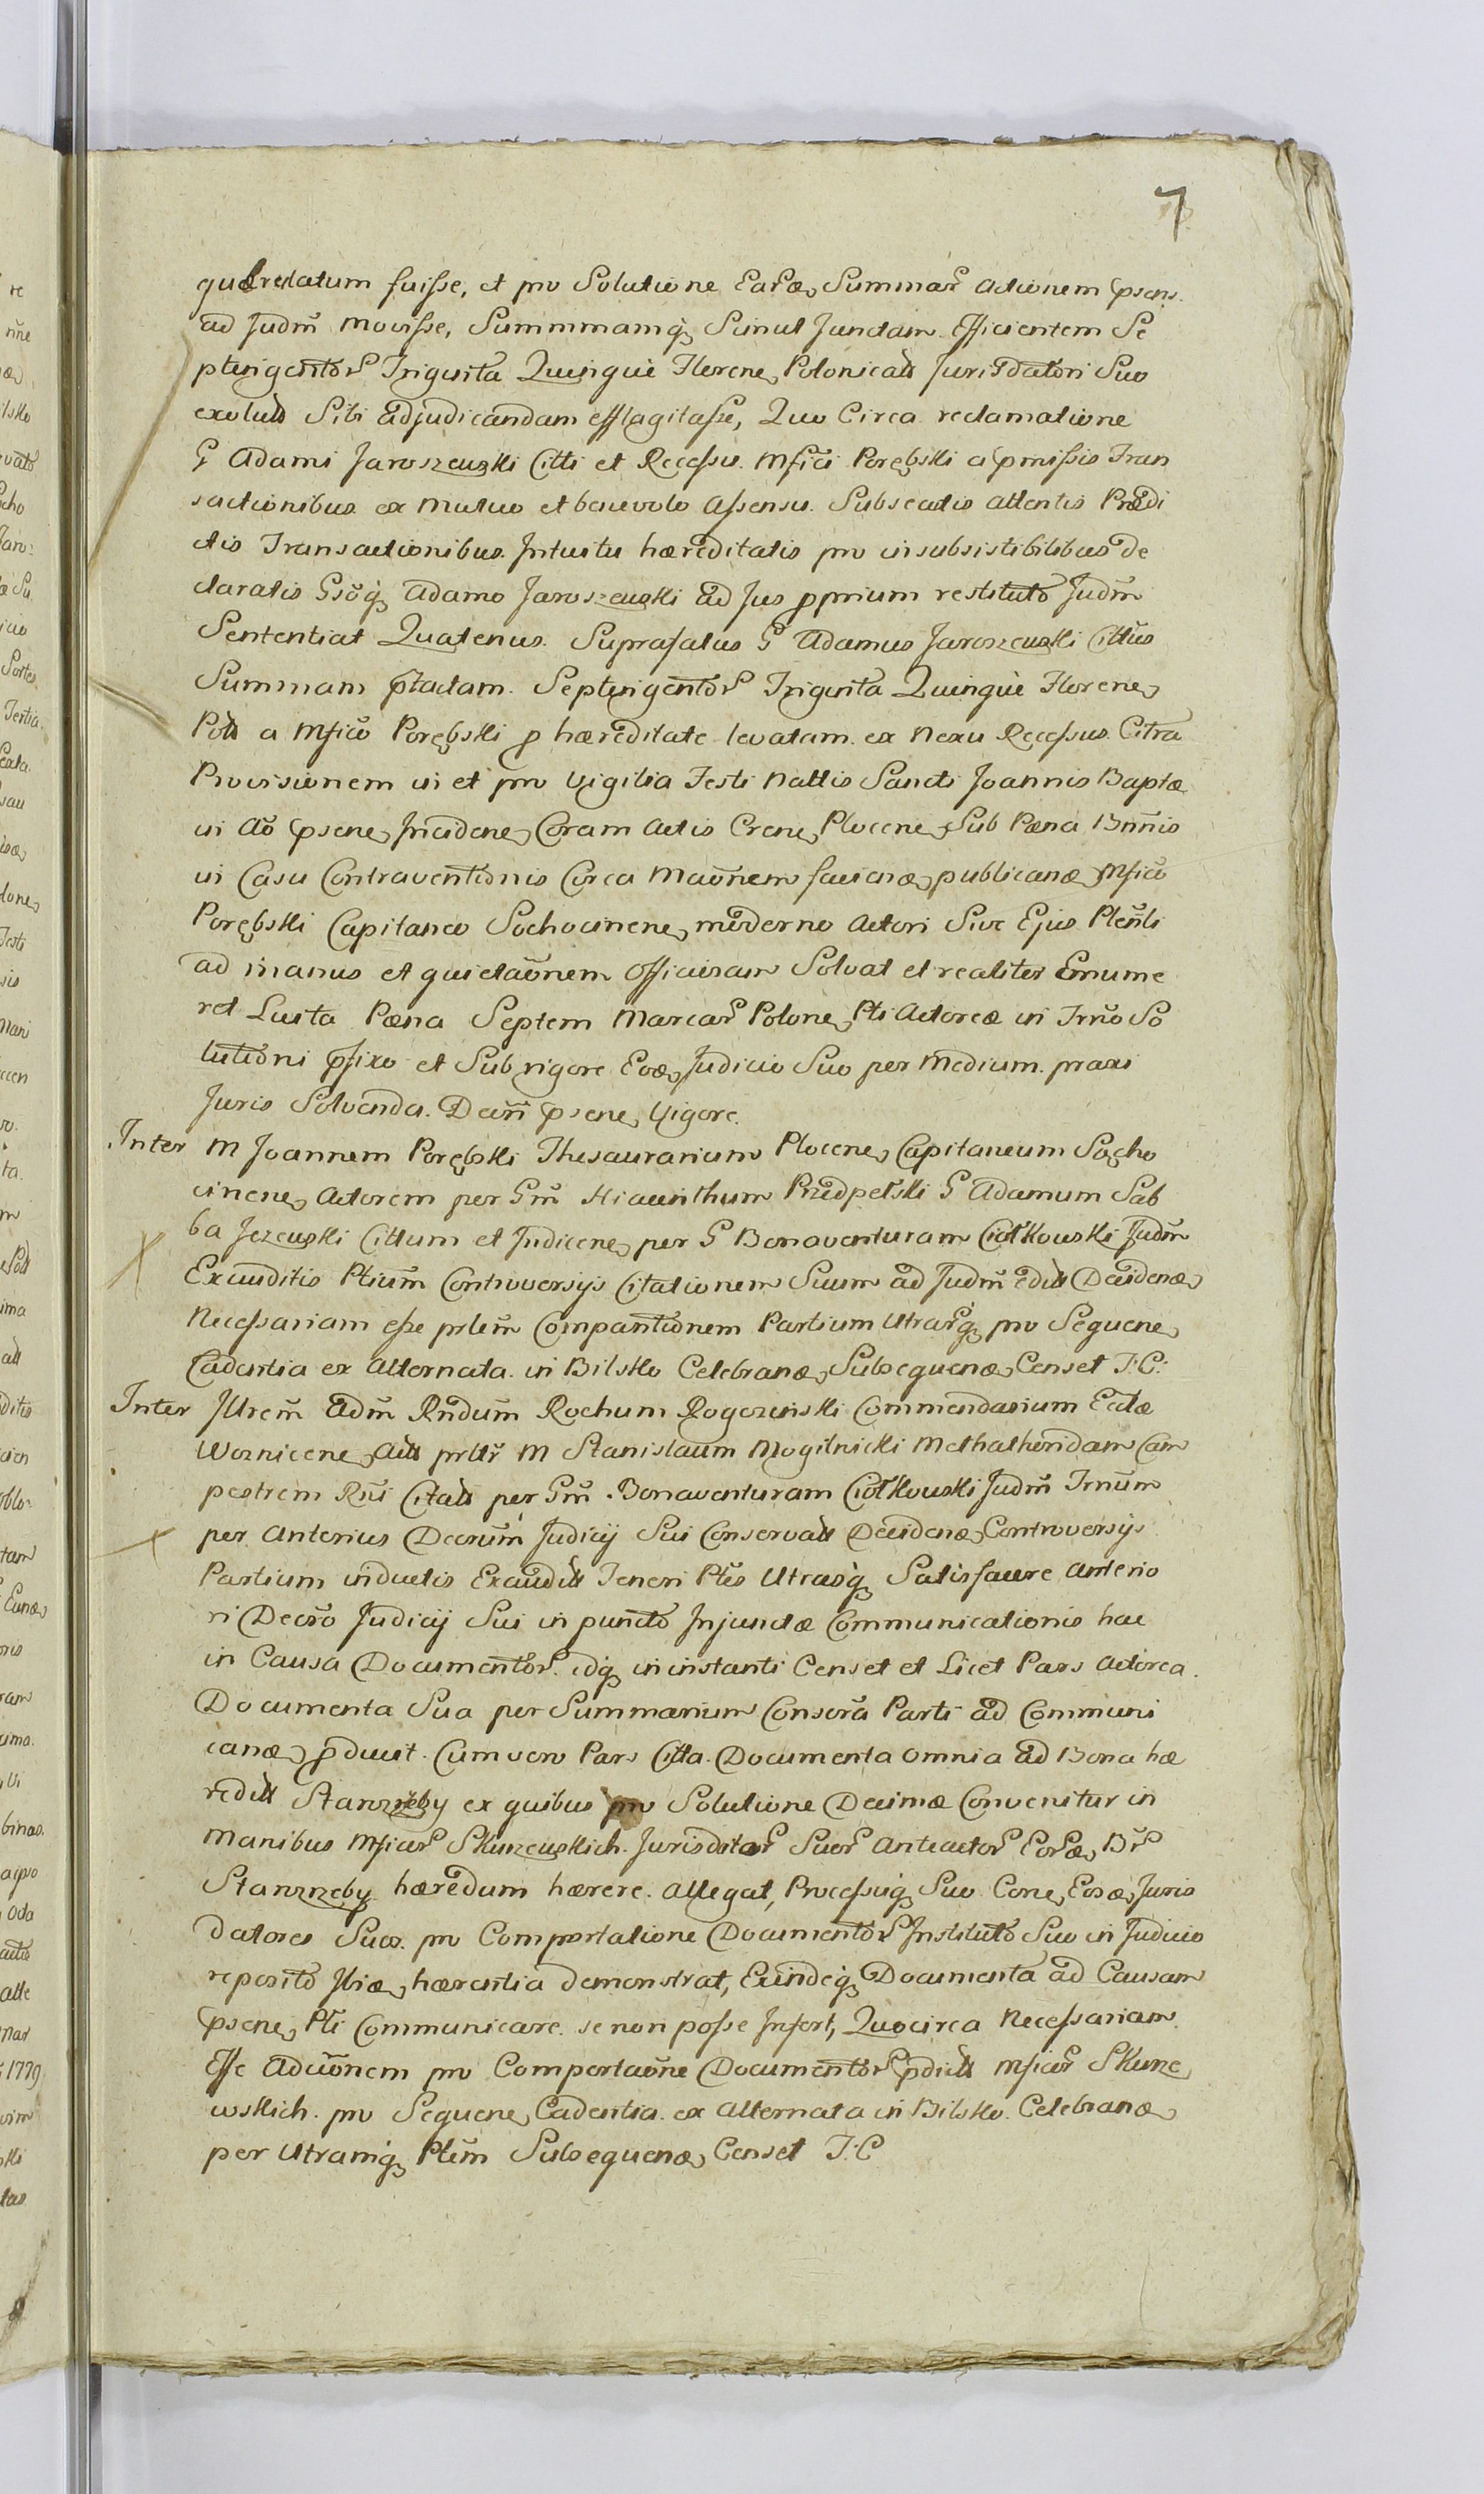 7
quæredatum fuisse, et pro Solutione Earꝫ Summar actionem pѕens.
ad Judm̃ movisse, Summmamqꝫ Simul Junctam Efficientem Se
ptengentor Triginta Quinque Florene Polonicals Jurisdatori Suo
exoluls Sibi adjudicandam efflagitasse, Quo Circa reclamatione
G Adami Jaroszewski Citti et Recessu Mfici Porębski a pmissis Tran
sactionibus ex Mutuo et benevolo assensu Subsecutis attentis Prædi
ctis Transactionibus Intuitu hæreditatis pro insubsistibilibus de
claratis Gsoqꝫ Adamo Jaroszewski ad Jus pprium restituto Judm̃
Sententiat Quatenus Suprafatus G Adamus Jaroszewski Cittus
Summam ptactam Septengentor Triginta Quinque Florene
Pols a Mfico Porębski p hæreditate levatam ex Nexu Recessus Citra
Provisionem in et pro Vigilia Festi Nattis Sancti Joannis Baptæ
in Ao psene Inciden Coram Actis Crene Plocene Sub Pæna Bnnis
in Casu Contraventionis Circa Maonem faciendæ publicanæ Mfico
Porębski Capitaneo Sochocinene moderno Actori Sive Ejus Pleñti
ad manus et quietaõnem officiosam Solvat et realiter Ennume
ret Luita Pæna Septem Marcar Polone Pti Actoreæ in Trno So
lutioni pfixo et Sub rigore Eoꝫ Judicio Suo per Medium praxi
Juris Solvenda. Decri psene Vigore.
Inter M Joannem Porębski Thesaurarium Plocene Capitaneum Socho
cinene Actorem per Gm̃ Hiacinthum Przedpełski G Adamum Sab
ba Jezewski Cittum et Indicene per G Bonaventuram Ciołkowski Judm̃
Exauditis Ptium̃ Controversijs Citationem Suum ad Judm̃ edits Decidenꝫ
Necessariam esse prlem̃ Comparitionem Partium Utrarqꝫ pro Sequene
Cadentia ex Alternata in Bilsko Celebranꝫ Subsequenꝫ Censet J: C:
Inter Illrem̃ Adm̃ Rndum̃ Rochum Rogozinski Commendarium Ecclæ
Woznicene Acts prltr̃ M Stanislaum Mogilnicki Methathendam Cam
pestrem Rñi Citats per Gm̃ Bonaventuram Ciołkowski Judm̃ Trnum̃
per anterius Decrum̃ Judicij Sui Conservats Decidenꝫ Controversijs
Partium inductis Exaudits Teneri Ptes Utrasqꝫ Satisfacere anterio
ri Decro Judicij Sui in puncto Injunctæ Communicationis hac
in Causa Documentor idqꝫ in instanti Censet et Licet Pars Actorea
Documenta Sua per Summarium Conscra Parti ad Communi
canꝫ pduxit. Cum vero Pars Citta Documenta omnia ad Bona hæ
redits Starozreby ex quibus pro Solutione Decimæ Convenitur in
Manibus Mficor Skurzewskich Jurisdator Suor Anteactor Eorꝫ Br
Starozreby hæredum hærere allegat, Processuqꝫ Suo Cone Eosꝫ Juris
datores Suos pro Comportatione Documentor Instituto Suo in Judicio
reposito Ibiꝫ hærentia demonstrat, Exindeqꝫ Documenta ad Causam
psene Pti Communicare se non posse Infert, Quocirca Necessariam
Esse Adcitõnem pro Comportaõne Documentor pdicts Mficor Skurze
wskich pro Sequene Cadentia ex Alternata in Bilsko Celebranꝫ
per Utramqꝫ Ptem̃ Subsequenꝫ Censet J: C